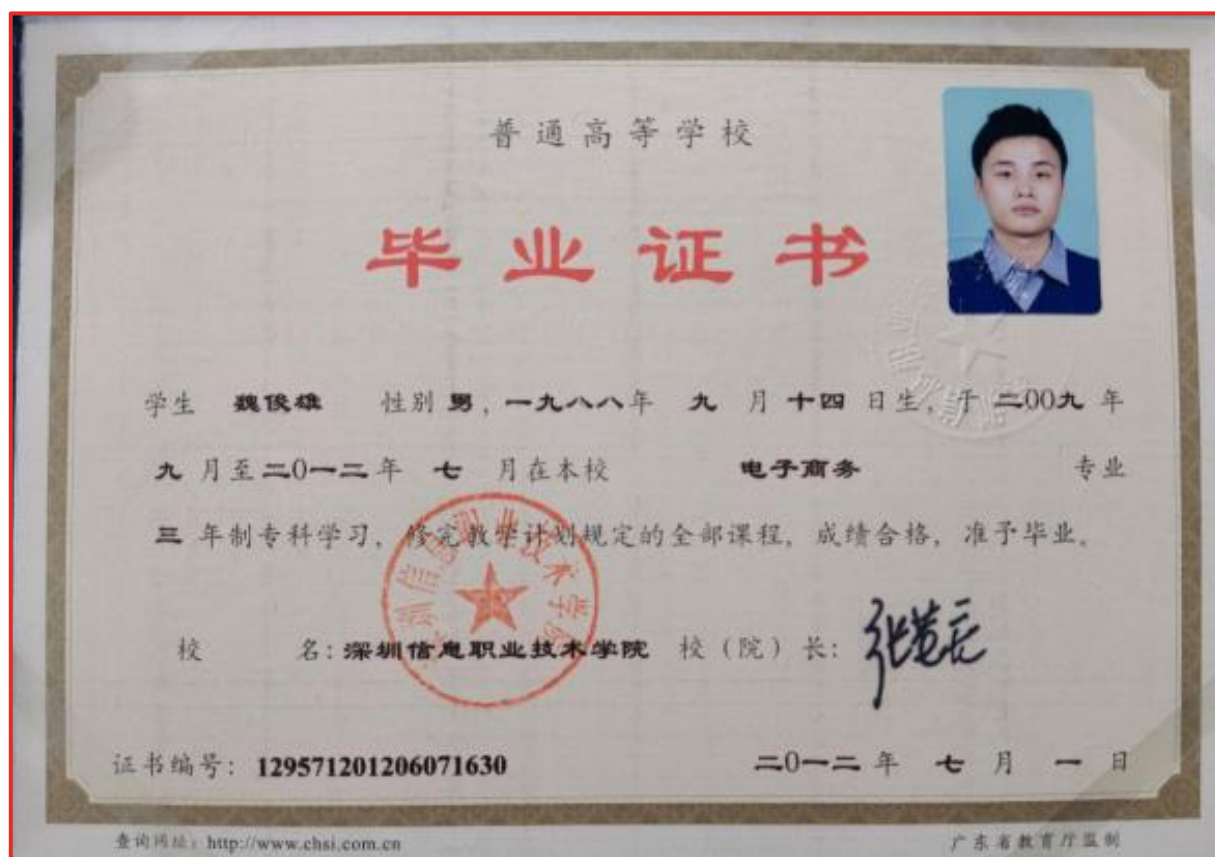 普通高等学校
毕业证书
学生 魏俊雄 性别 男，一九八八年 九 月 十四 日生，于 二00九 年
九 月至二0一二年 七 月在本校 电子商务 专业
三 年制专科学习，修完教学计划规定的全部课程，成绩合格，准予毕业。
校 名：深圳信息职业技术学院 校（院）长：
深圳信息职业技术学院
证书编号：129571201206071630 二0一二 年 七 月 一 日
查询网址：http://www.chsi.com.cn 广东省教育厅监制